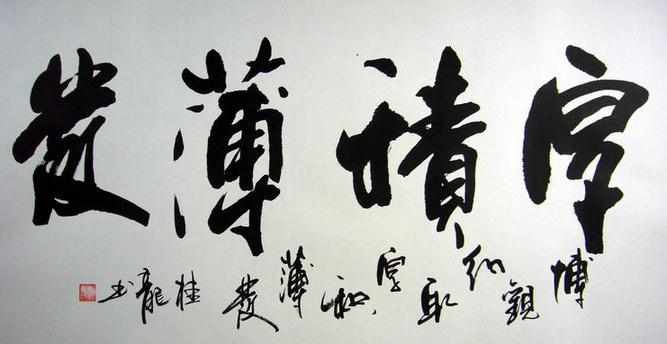 厚積薄發
博觀約取厚积薄發 桂龍书